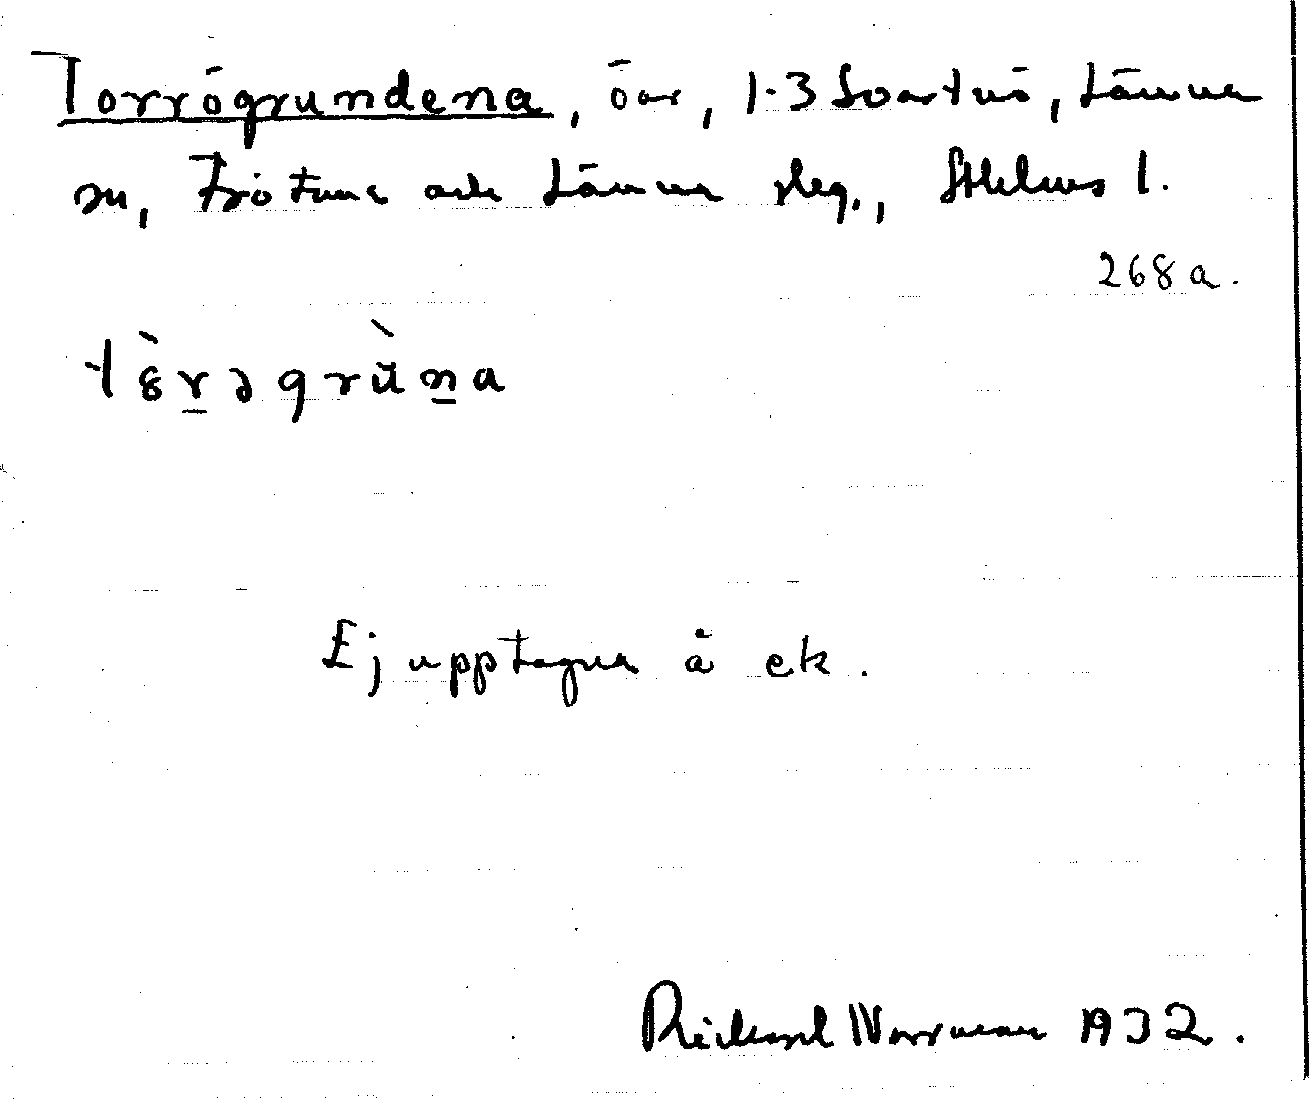 Torrögrundena, öar, 1-3 Svartnö, Länna
sn, Frötuna och Länna slg., Sthlms l.
268 a.
tèr̲əgrùn̲a
Ej upptagna å ek.
Rickard Norrman 1932.